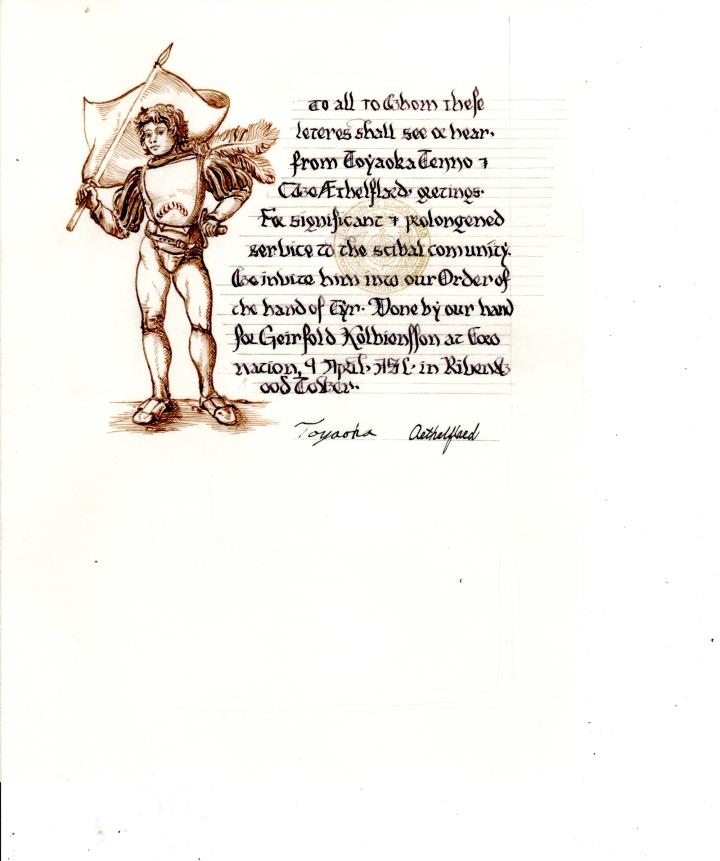 To all to whom these
leteres shall see or hear.
from Toyaoka Tenno &
Æthelflæd, gretings.
For significant & prolongened
service to the scibal comunity.
We invite him into our Order of
the hand of Tyr. Done by our hand
for Geirfold Kolbionsson at Coro
nation, 9 April, in Rivenw
ood Tower.
Toyaoka Aethelflaed